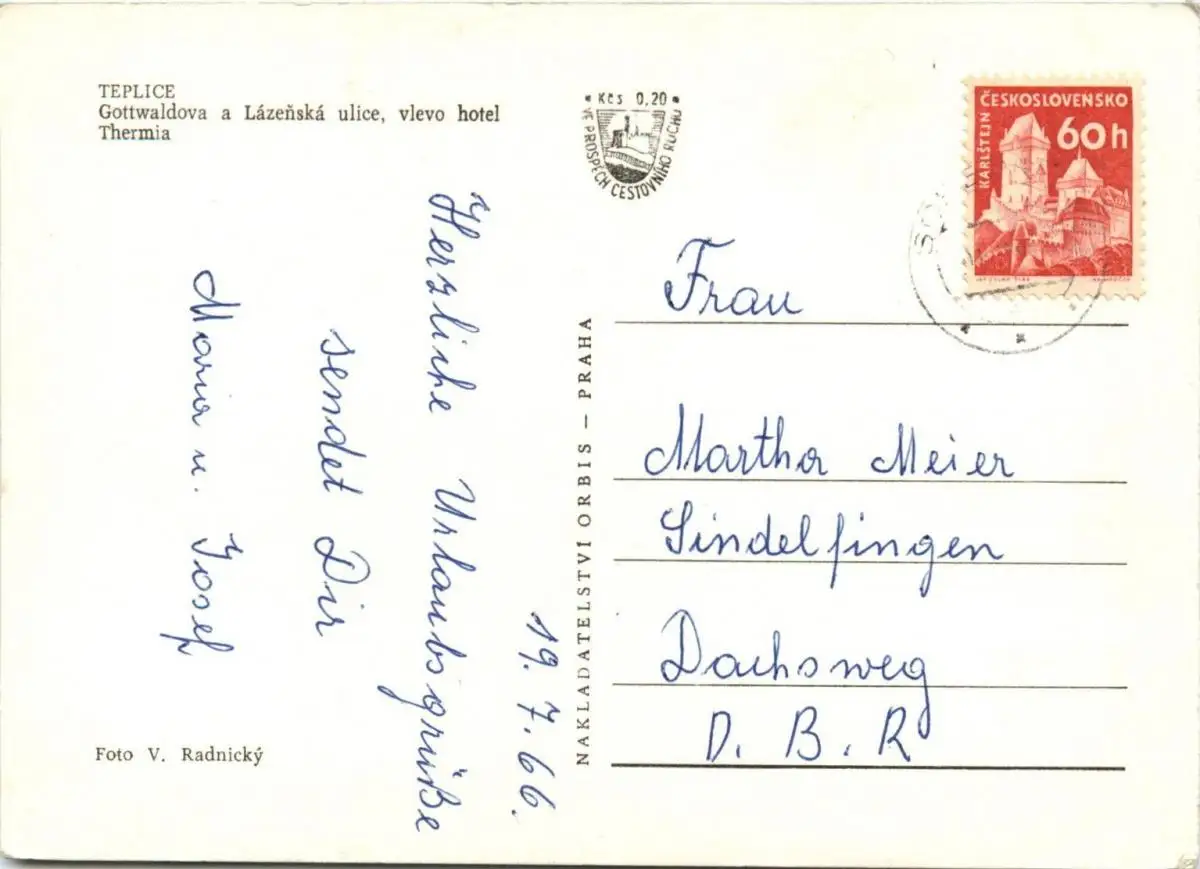 TEPLICE
Gottwaldova a Lázeňská ulice, vlevo hotel
Thermia
Kčs 0,20
VE PROSPĚCH CESTOVNÍHO RUCHU
ČESKOSLOVENSKO
KARLŠTEJN
60h
19.7.66.
Herzliche Urlaubsgrüße
sendet Dir
Maria u. Josef
NAKLADATELSTVÍ ORBIS — PRAHA
Frau
Martha Meier
Sindelfingen
Dachsweg
D. B. R
Foto V. Radnický